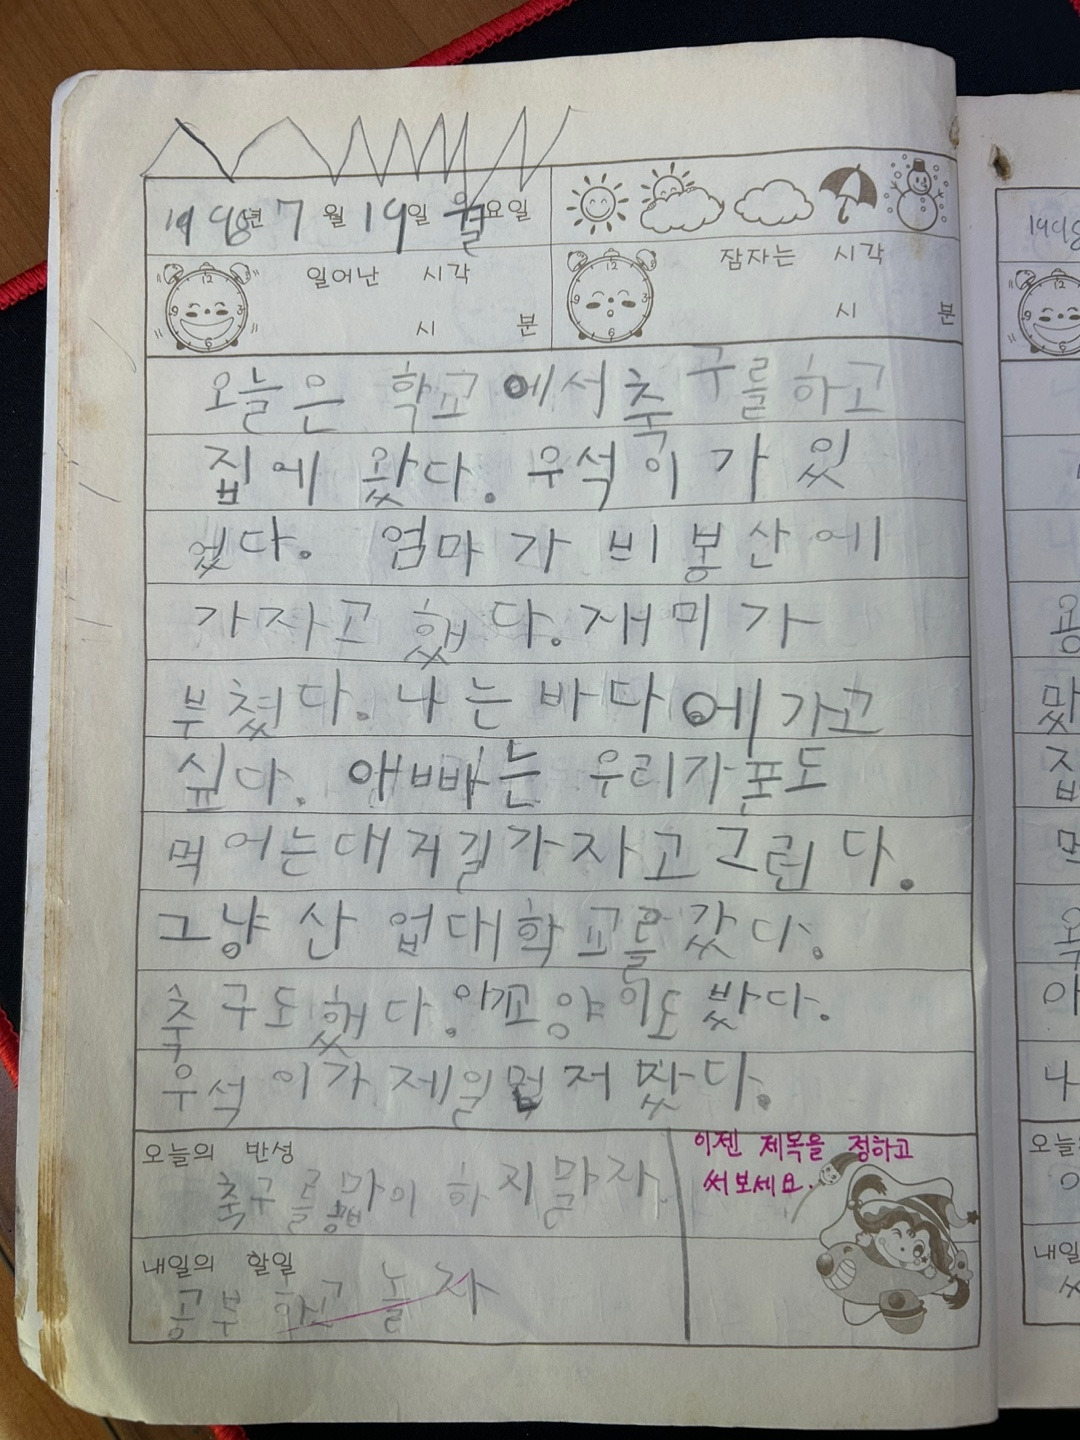 1998년 7월 19일 월요일
일어난 시각
시 분
잠자는 시각
시 분
오늘은 학교에서 축구를 하고
집에 왔다. 우석이가 있
었다. 엄마가 비봉산에
가자고 했다. 재미가
부쳤다. 나는 바다에 가고
싶다. 애빠는 우리가 폰도
먹어는대 저길 가자고 그런다.
그냥 산업대학교를 갔다.
축구도 했다. 아꼬양이도 밨다.
우석이가 제일 먼저 짰다.
오늘의 반성
축구를 많이 하지말자.
이젠 제목을 정하고
써보세요.
내일의 할일
공부 하고 놀자
1998
오늘
내일